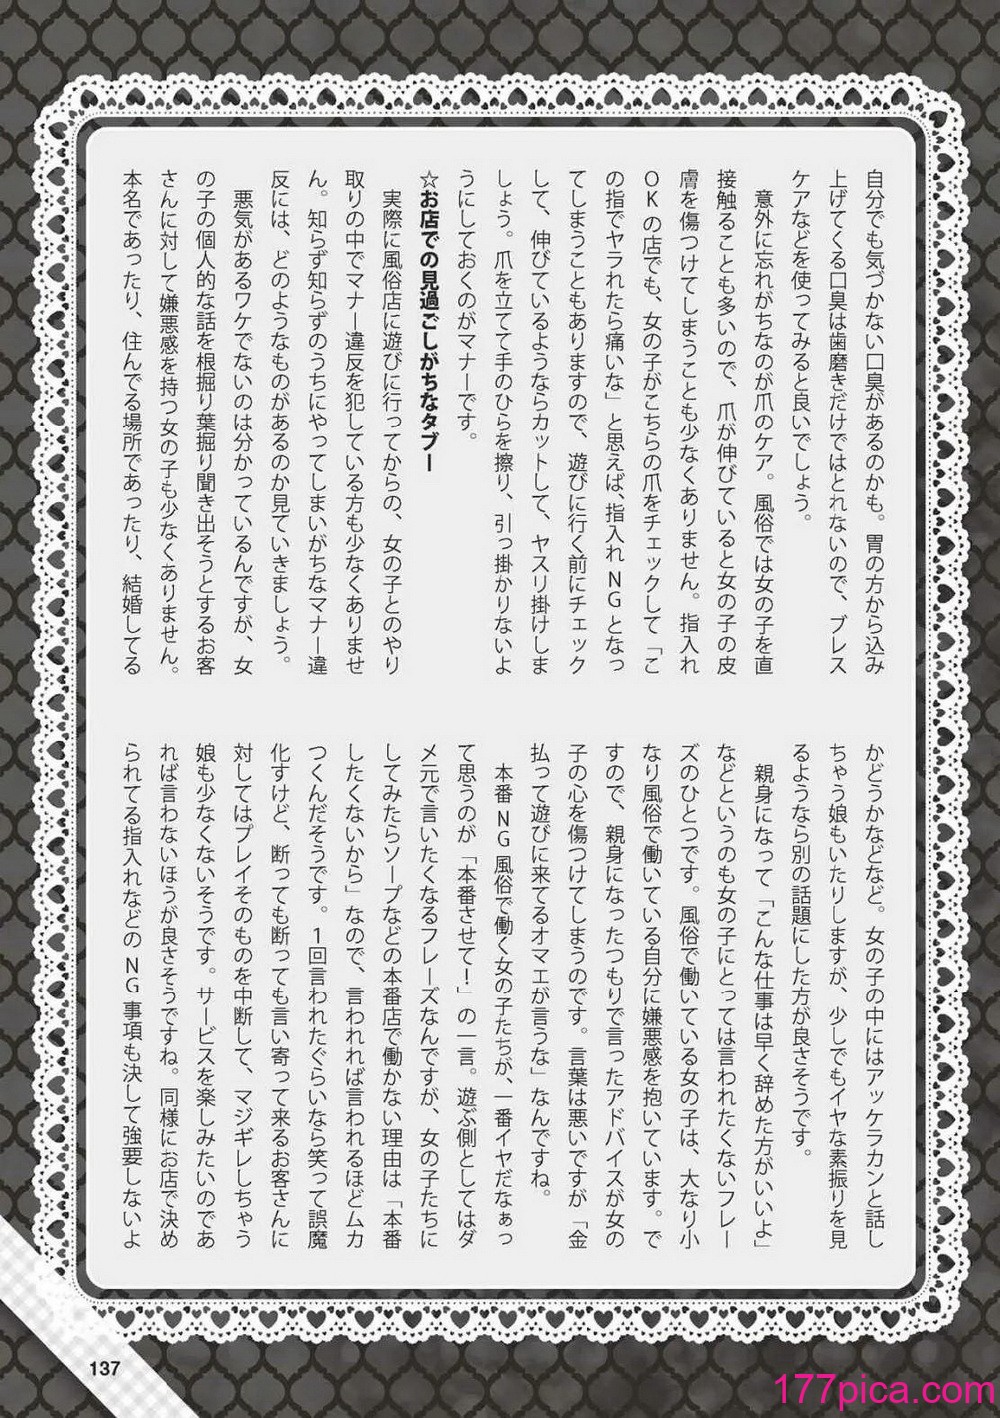 自分でも気づかない口臭があるのかも。胃の方から込み
上げてくる口臭は歯磨きだけではとれないので、ブレス
ケアなどを使ってみると良いでしょう。
意外に忘れがちなのが爪のケア。風俗では女の子を直
接触ることも多いので、爪が伸びていると女の子の皮
膚を傷つけてしまうことも少なくありません。指入れ
OKの店でも、女の子がこちらの爪をチェックして「こ
の指でヤラれたら痛いな」と思えば、指入れNGとなっ
てしまうこともありますので、遊びに行く前にチェック
して、伸びているようならカットして、ヤスリ掛けしま
しょう。爪を立てて手のひらを擦り、引っ掛かりないよ
うにしておくのがマナーです。
☆お店での見過ごしがちなタブー
実際に風俗店に遊びに行ってからの、女の子とのやり
取りの中でマナー違反を犯している方も少なくありませ
ん。知らず知らずのうちにやってしまいがちなマナー違
反には、どのようなものがあるのか見ていきましょう。
悪気があるワケでないのは分かっているんですが、女
の子の個人的な話を根掘り葉掘り聞き出そうとするお客
さんに対して嫌悪感を持つ女の子も少なくありません。
本名であったり、住んでる場所であったり、結婚してる
かどうかなどなど。女の子の中にはアッケラカンと話し
ちゃう娘もいたりしますが、少しでもイヤな素振りを見
るようなら別の話題にした方が良さそうです。
親身になって「こんな仕事は早く辞めた方がいいよ」
などというのも女の子にとっては言われたくないフレー
ズのひとつです。風俗で働いている女の子は、大なり小
なり風俗で働いている自分に嫌悪感を抱いています。で
すので、親身になったつもりで言ったアドバイスが女の
子の心を傷つけてしまうのです。言葉は悪いですが「金
払って遊びに来てるオマエが言うな」なんですね。
本番NG風俗で働く女の子たちが、一番イヤだなぁっ
て思うのが「本番させて！」の一言。遊ぶ側としてはダ
メ元で言いたくなるフレーズなんですが、女の子たちに
してみたらソープなどの本番店で働かない理由は「本番
したくないから」なので、言われれば言われるほどムカ
つくんだそうです。1回言われたぐらいなら笑って誤魔
化すけど、断っても断っても言い寄って来るお客さんに
対してはプレイそのものを中断して、マジギレしちゃう
娘も少なくないそうです。サービスを楽しみたいのであ
れば言わないほうが良さそうですね。同様にお店で決め
られてる指入れなどのNG事項も決して強要しないよ
137
177pica.com